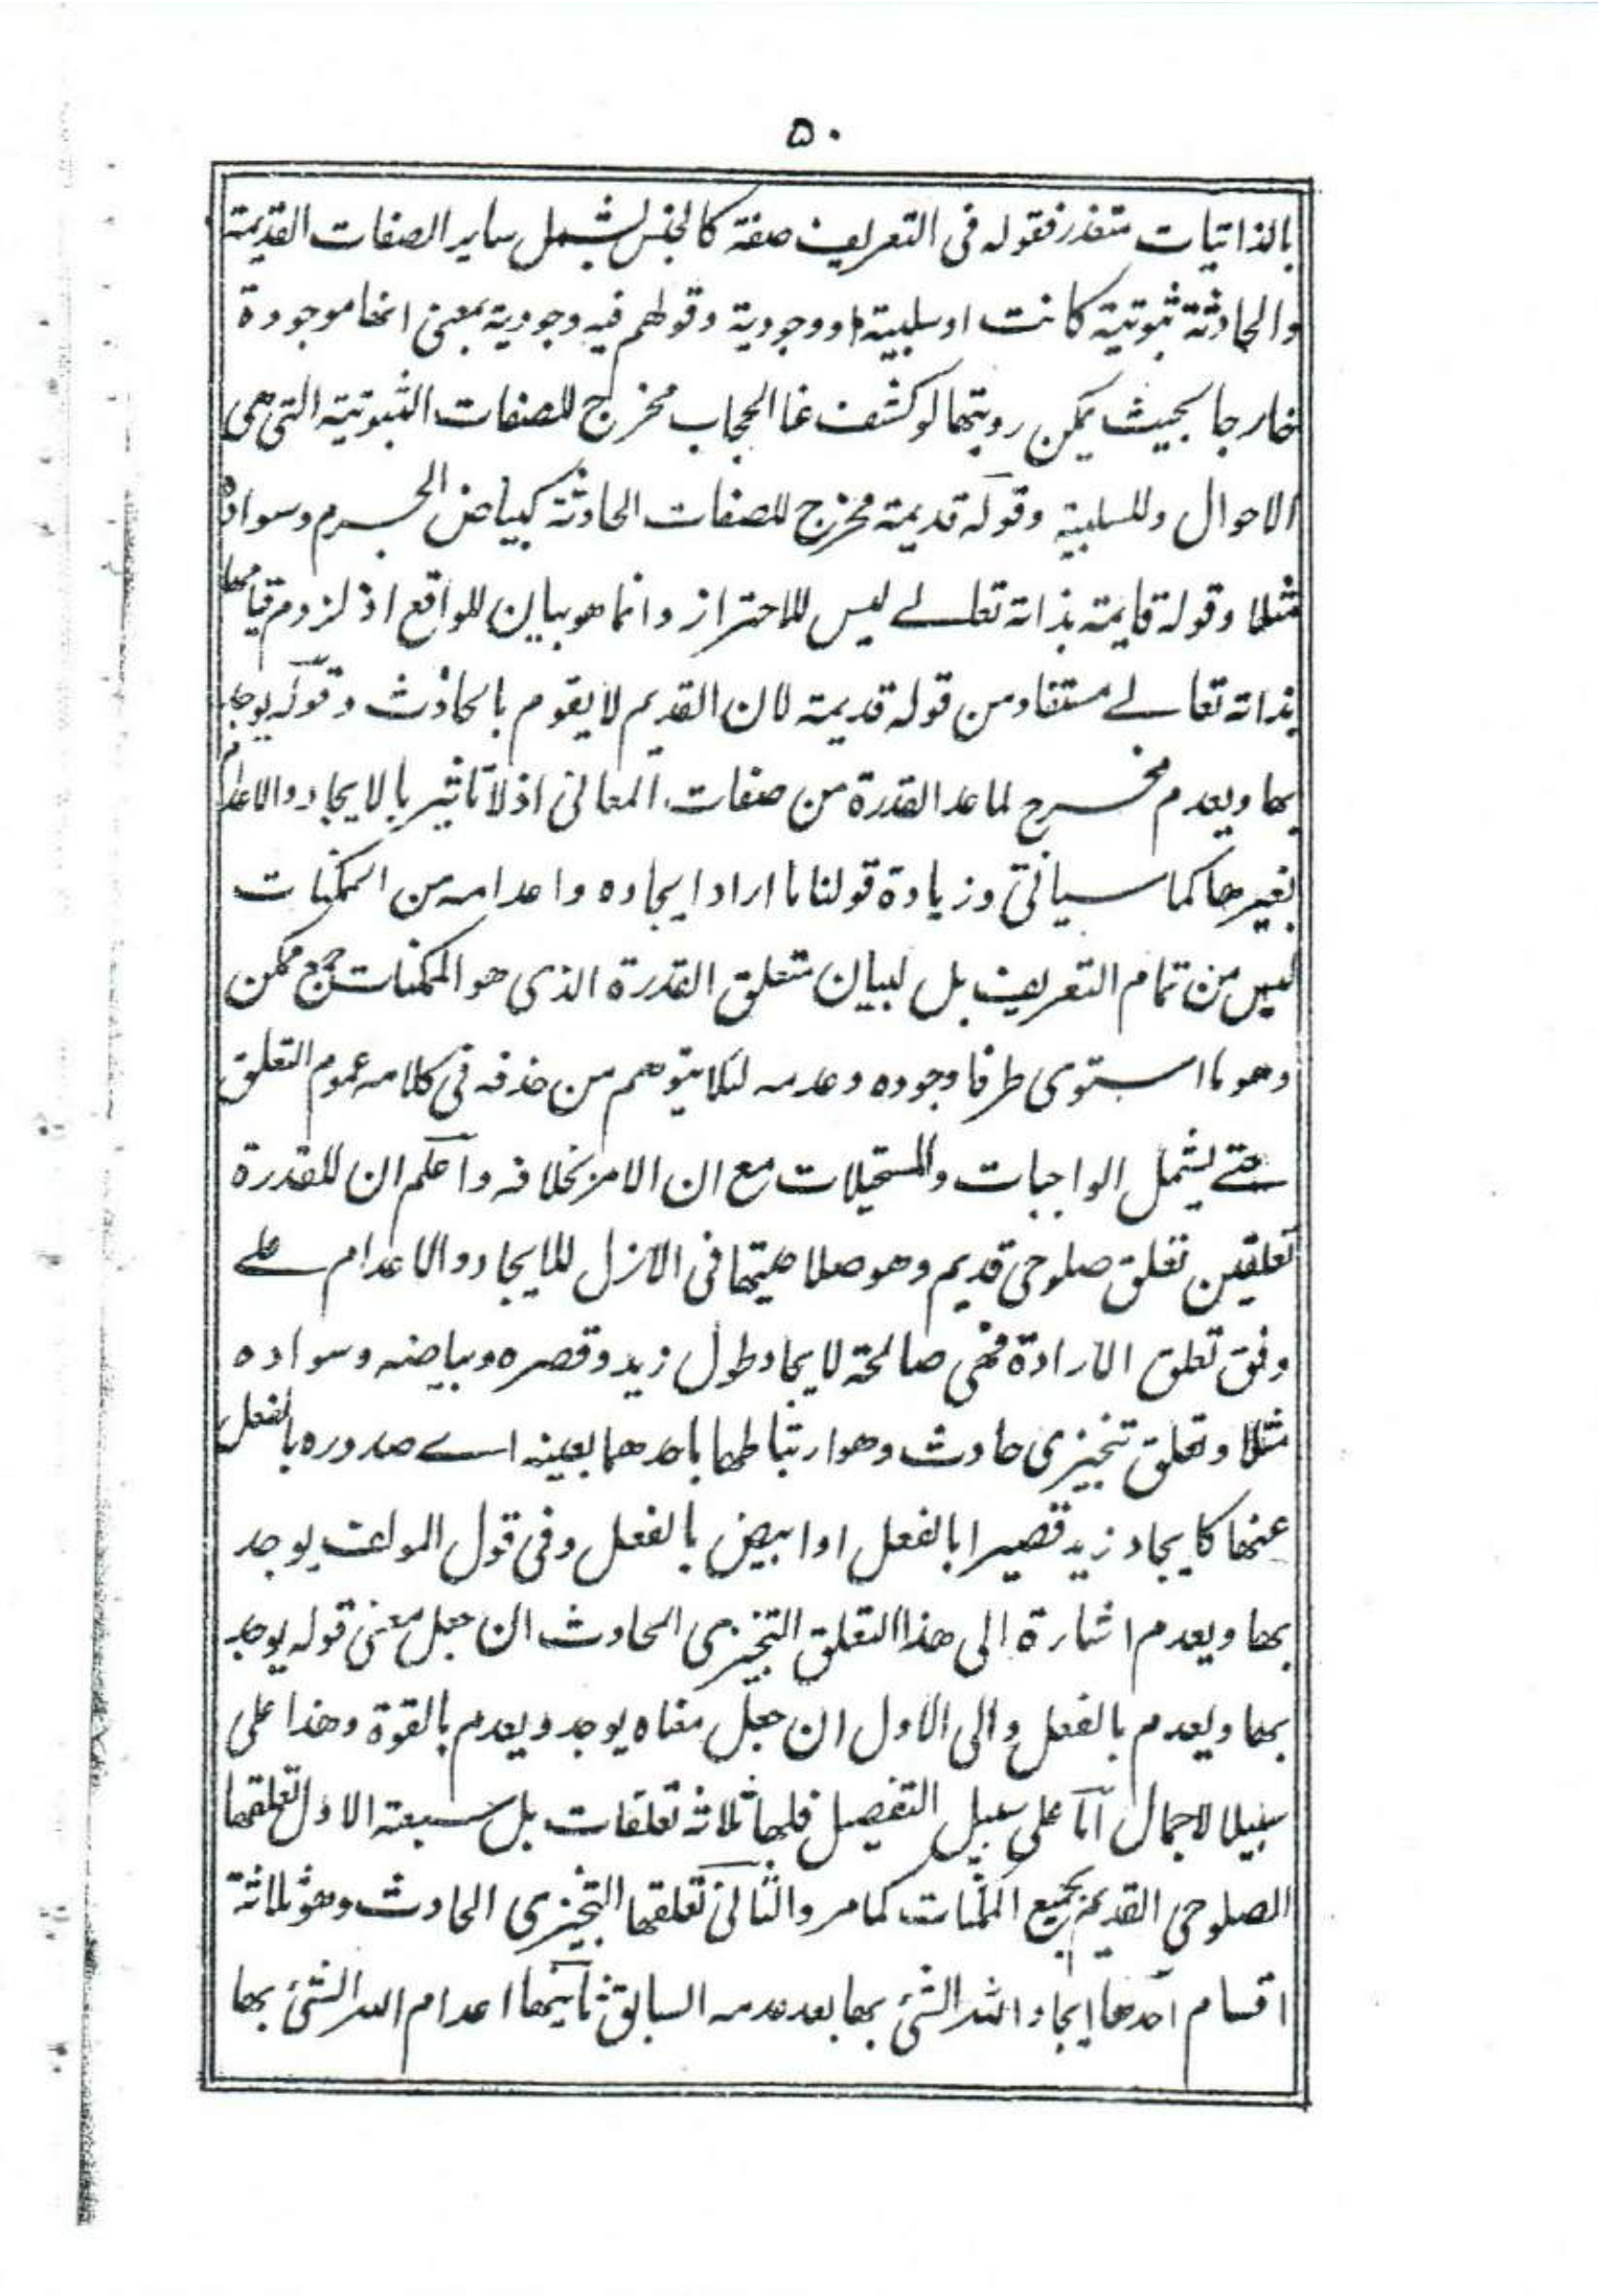 ۵۰
بالذاتيات متعذر فقوله فى التعريف صفة كالجنس ليشمل ساير الصفات القديمة
والحادثة ثبوتية كانت اوسلبية او وجودية وقولهم فيه وجودية بمعنى انها موجودة
خارجا بحيث يمكن رويتها لو كشف عنا الحجاب مخرج للصفات الثبوتية التى هى
الاحوال وللسلبية وقوله قديمة مخرج للصفات الحادثة كبياض الجرم وسواده
مثلا وقوله قايمة بذاته تعالى ليس للاحتراز وانما هو بيان للواقع اذ لزوم قيامها
بذاته تعالى مستفاد من قوله قديمة لان القديم لا يقوم بالحادث وقوله يوجد
بها ويعدم مخرج لما عدا القدرة من صفات المعانى اذ لا تاثير بالايجاد والاعدام
لغيرها كما سياتى وزيادة قولنا ما اراد ايجاده واعدامه من الممكنات
ليس من تمام التعريف بل لبيان متعلق القدرة الذى هو الممكنات جمع ممكن
وهو ما استوى طرفا وجوده وعدمه لئلا يتوهم من حذفه فى كلامه عموم التعلق
حتى يشمل الواجبات والمستحيلات مع ان الامر بخلافه واعلم ان للقدرة
تعلقين تعلق صلوحى قديم وهو صلاحيتها فى الازل للايجاد والاعدام على
وفق تعلق الارادة فهى صالحة لايجاد طول زيد وقصره وبياضه وسواده
مثلا وتعلق تنجيزى حادث وهو ارتباطها باحدهما بعينه اى صدوره بالفعل
عنها كايجاد زيد قصيرا بالفعل او ابيض بالفعل وفى قول المولف يوجد
بها ويعدم اشارة الى هذا التعلق التنجيزى الحادث ان جعل معنى قوله يوجد
بها ويعدم بالفعل والى الاول ان جعل معناه يوجد ويعدم بالقوة وهذا على
سبيل الاجمال اما على سبيل التفصيل فلها ثلاثة تعلقات بل سبعة الاول تعلقها
الصلوحى القديم بجميع الممكنات كما مر والثانى تعلقها التنجيزى الحادث وهو ثلاثة
اقسام احدها ايجاد الله الشئ بها بعد عدمه السابق ثانيها اعدام الله الشئ بها